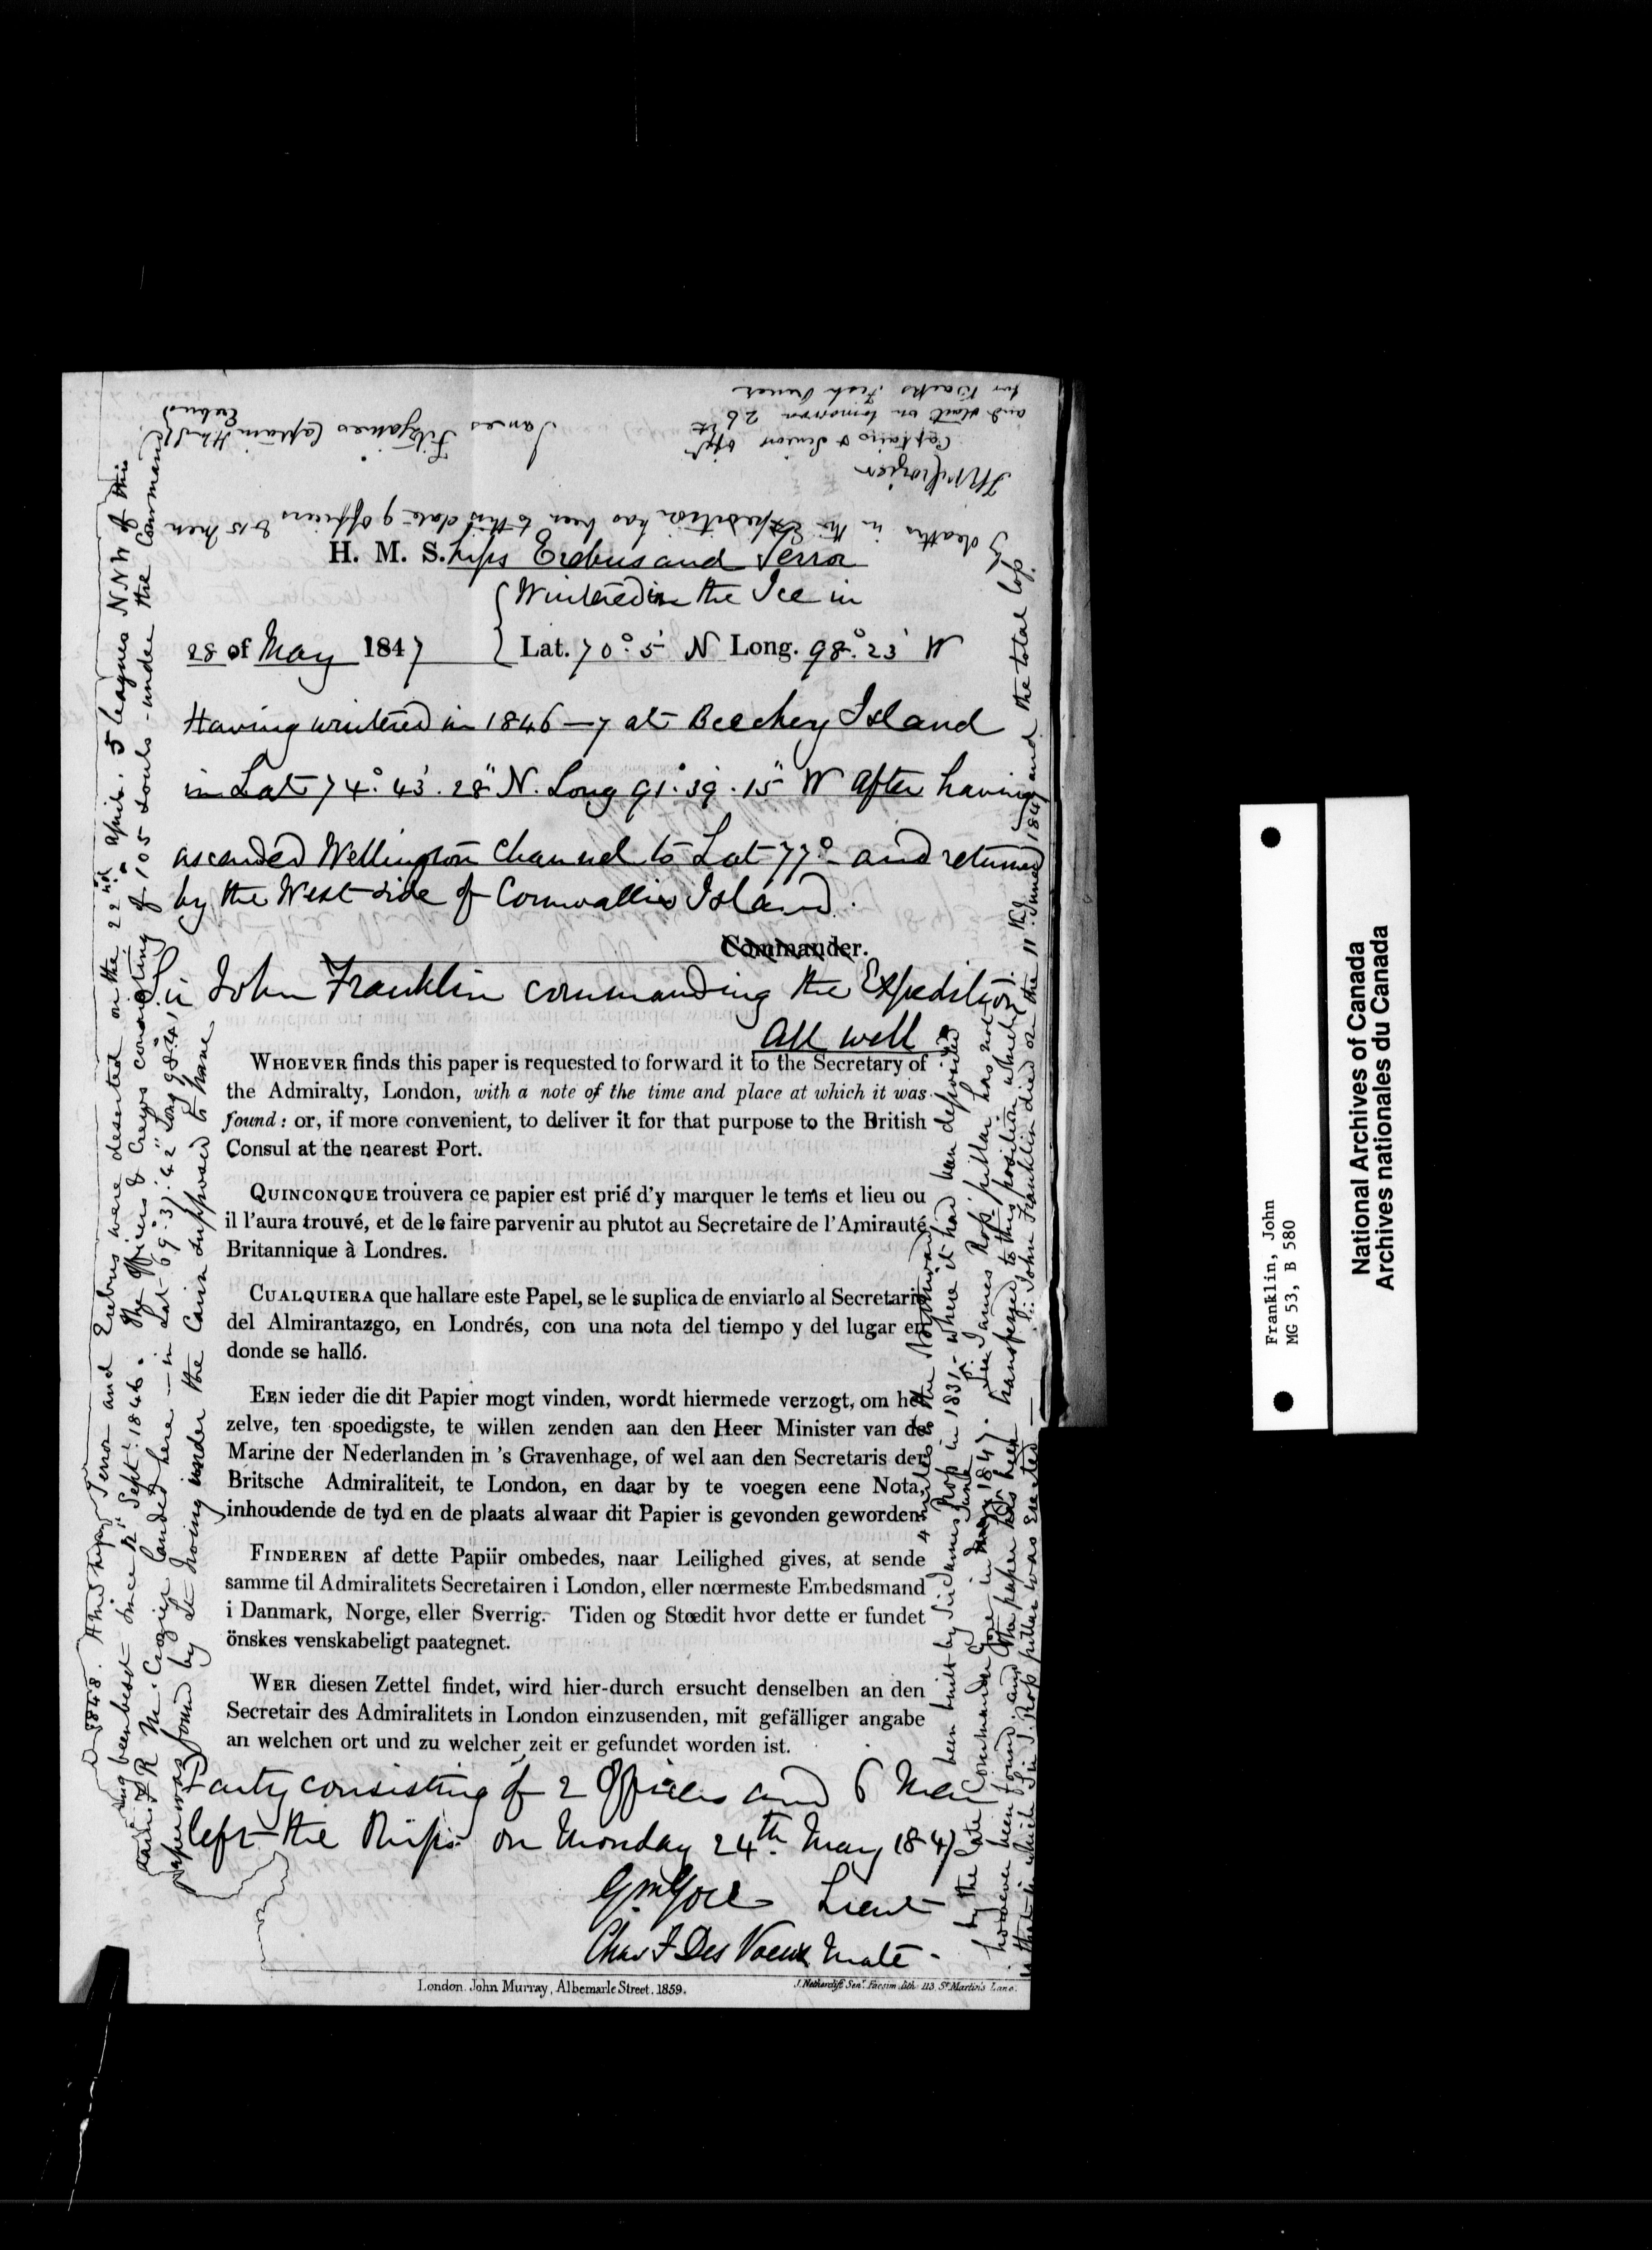 H. M. S.hips Erebus and Terror
Wintered in the Ice in
28 of May 1847 Lat. 70° 5' N Long. 98°. 23' W
Having wintered in 1846–7 at Beechey Island
in Lat 74°. 43'. 28" N. Long 91°. 39'. 15" W After having
ascended Wellington Channel to Lat 77° and returned
by the West side of Cornwallis Island.
Commander.
Sir John Franklin commanding the Expedition.
All well
WHOEVER finds this paper is requested to forward it to the Secretary of
the Admiralty, London, with a note of the time and place at which it was
found: or, if more convenient, to deliver it for that purpose to the British
Consul at the nearest Port.
QUINCONQUE trouvera ce papier est prié d'y marquer le tems et lieu ou
il l'aura trouvé, et de le faire parvenir au plutot au Secretaire de l'Amirauté
Britannique à Londres.
CUALQUIERA que hallare este Papel, se le suplica de enviarlo al Secretario
del Almirantazgo, en Londrés, con una nota del tiempo y del lugar en
donde se halló.
EEN ieder die dit Papier mogt vinden, wordt hiermede verzogt, om het
zelve, ten spoedigste, te willen zenden aan den Heer Minister van de
Marine der Nederlanden in 's Gravenhage, of wel aan den Secretaris der
Britsche Admiraliteit, te London, en daar by te voegen eene Nota,
inhoudende de tyd en de plaats alwaar dit Papier is gevonden geworden
FINDEREN af dette Papiir ombedes, naar Leilighed gives, at sende
samme til Admiralitets Secretairen i London, eller nœrmeste Embedsmand
i Danmark, Norge, eller Sverrig. Tiden og Stœdit hvor dette er fundet
önskes venskabeligt paategnet.
WER diesen Zettel findet, wird hier-durch ersucht denselben an den
Secretair des Admiralitets in London einzusenden, mit gefälliger angabe
an welchen ort und zu welcher zeit er gefundet worden ist.
Party consisting of 2 Officers and 6 Men
left the Ships on Monday 24th. May 1847
Gm. Gore Lieut
Chas F Des Voeux Mate
London. John Murray, Albemarle Street. 1859.
J. Netherclift Senr. Facsim. lith. 113 St. Martin's Lane.
1848. Terror and Erebus were deserted on the 22nd April. 5 leagues NNW of this
been beset since 12th Sept. 1846. The Officers & Crews consisting of 105 souls - under the Command
F R M. Crozier landed here - in Lat. 69°. 37'. 42" Long 98°. 41'
paper was found by Lt Irving under the Cairn supposed to have
been built by Sir James Ross in 1831 - where it had been deposited
4 miles to the Northward
by the late Commander Gore in May June 1847. Sir James Ross' pillar has not
however been found and the paper has been transferred to this position which
is that in which Sir J. Ross pillar was erected — Sir John Franklin died on the 11th. June 1847 and the total loss
by deaths in the Expedition has been to this date 9 Officers & 15 Men
James Fitzjames Captain HMS Erebus
F R M Crozier
Captain & Senior Offr
and start on tomorrow 26th
for Backs Fish River
Franklin, John
MG 53, B 580
National Archives of Canada
Archives nationales du Canada